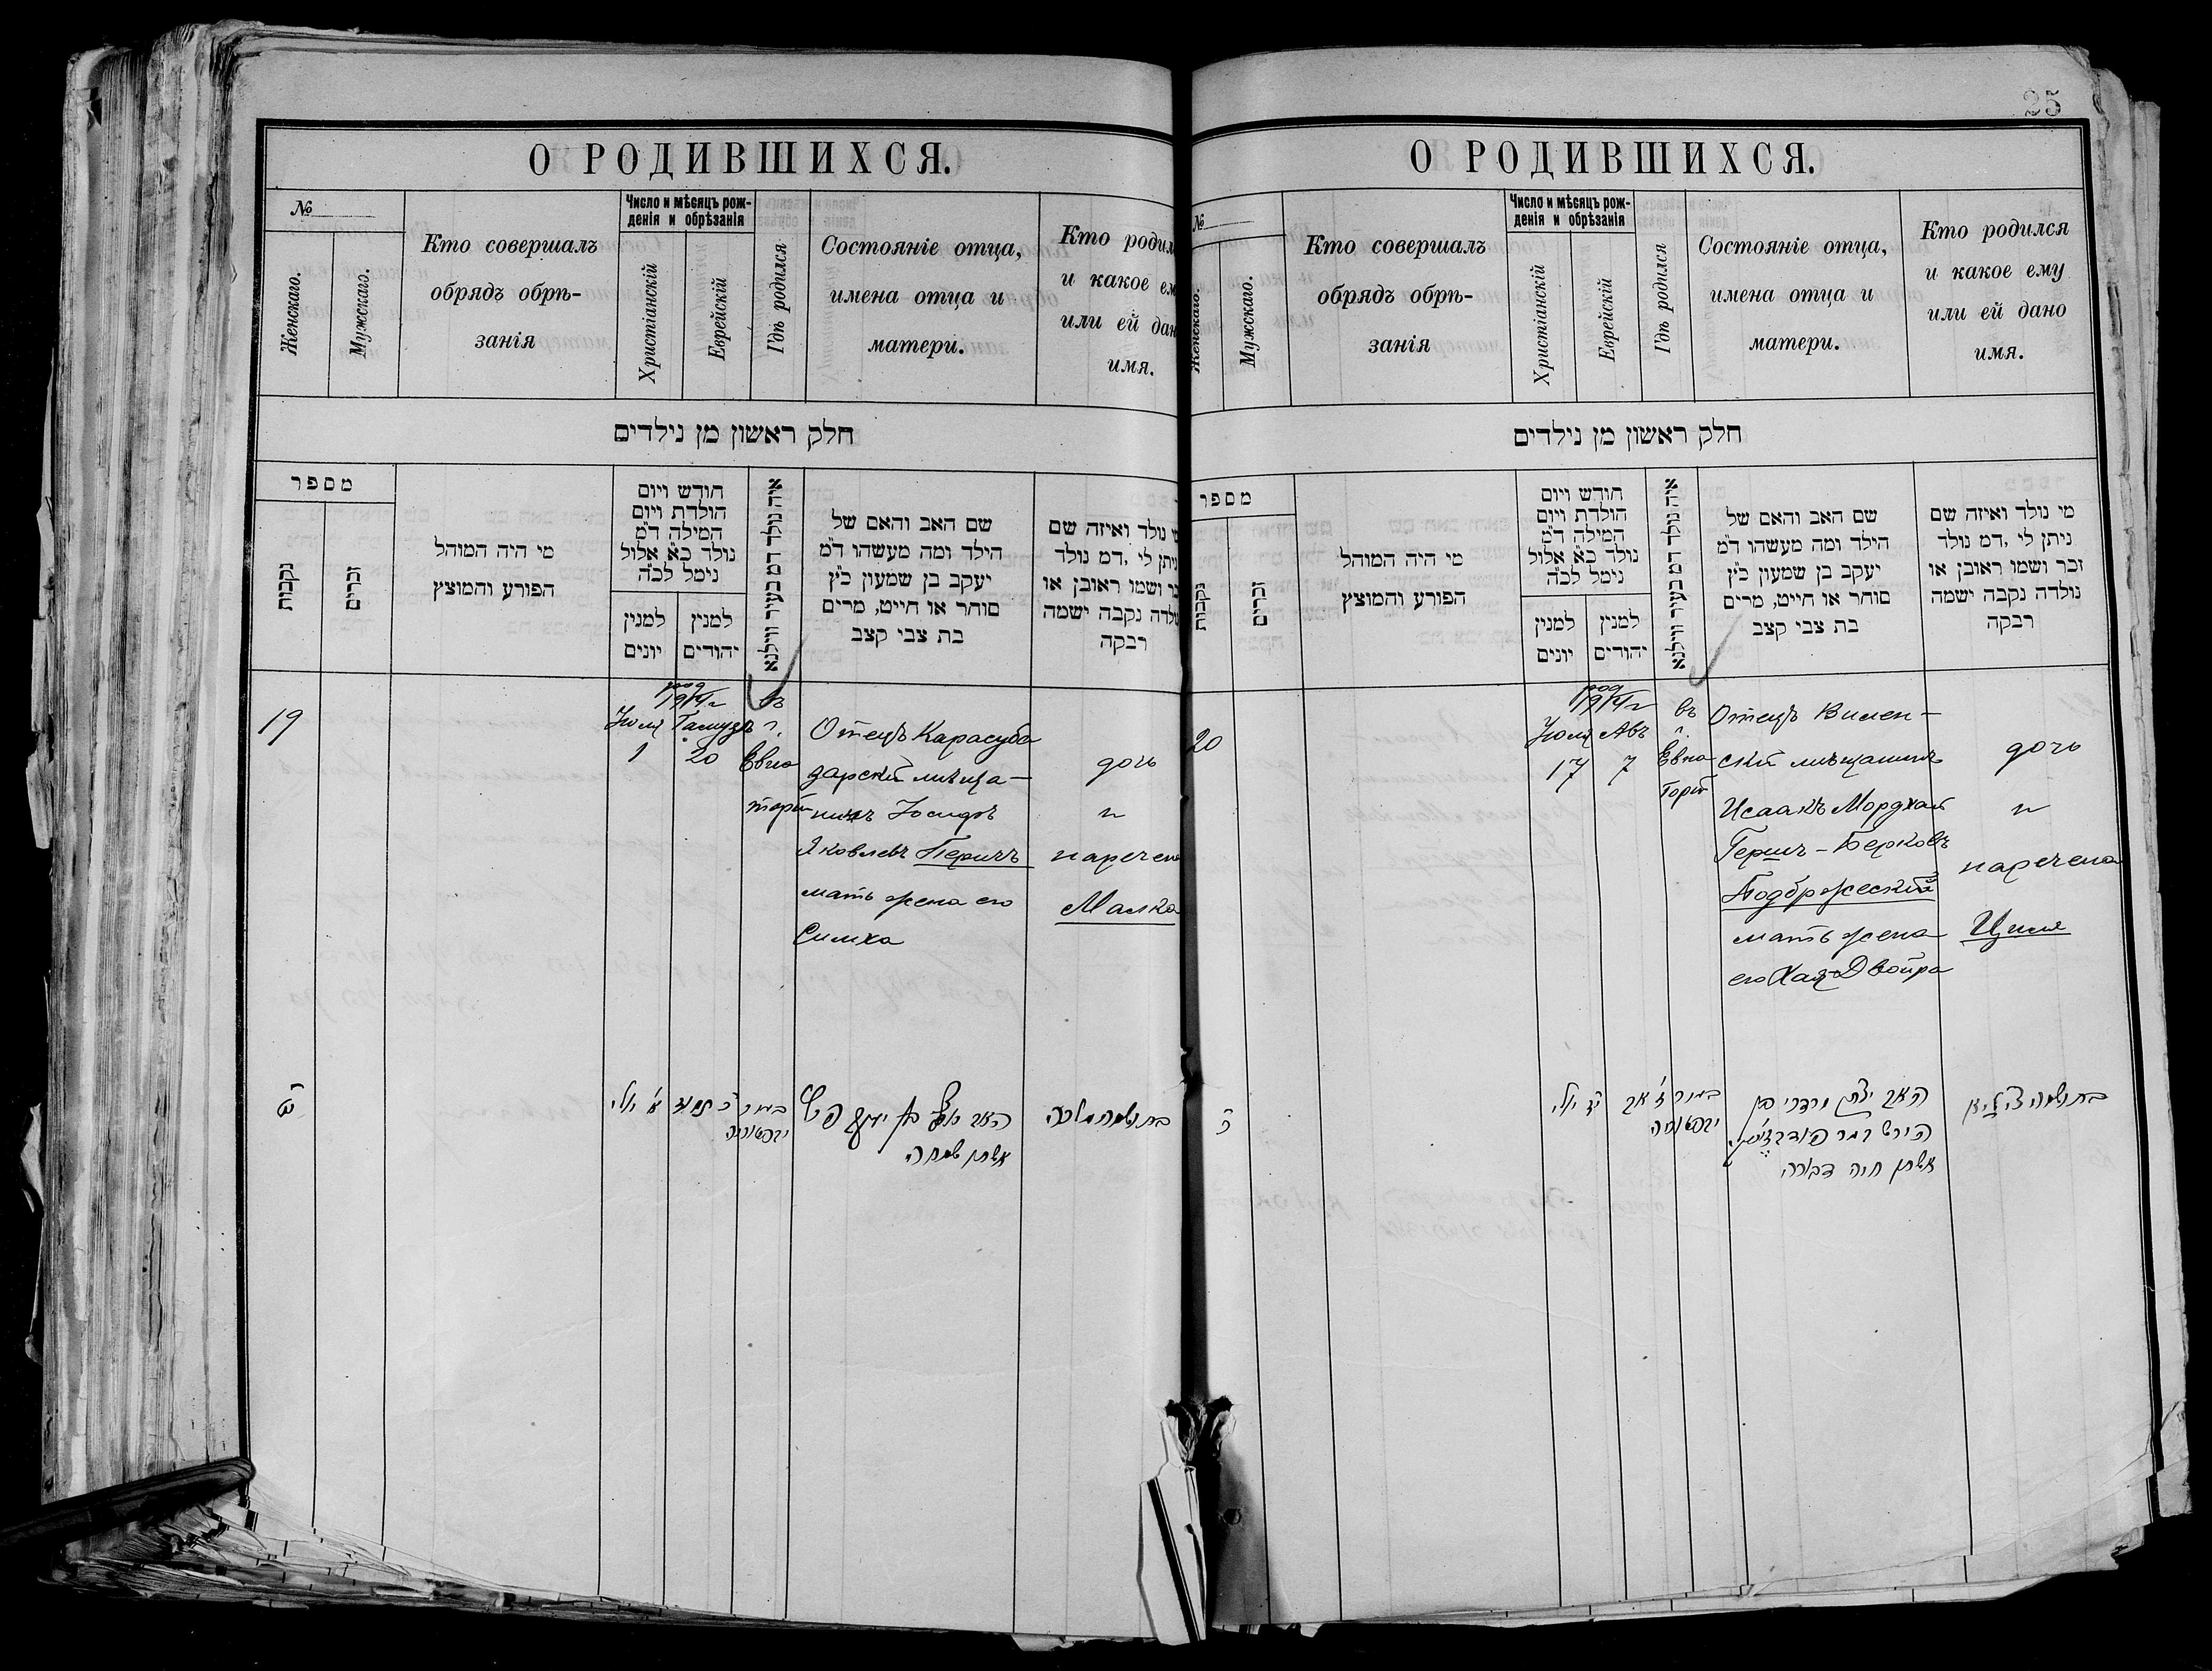 О РОДИВШИХСЯ.
№
Женскаго.
Мужскаго.
Кто совершалъ
обрядъ обрѣ-
занія
Число и мѣсяцъ рож-
денія и обрѣзанія
Христіанскій
Еврейскій
Гдѣ родился
Состояніе отца,
имена отца и
матери.
Кто родил
и какое ем
или ей дан
имя.
חלק ראשון מן נילדים
מספר
נקבות
זכרים
מי היה המוהל
הפורע והמוצץ
חודש ויום
הולדת ויום
המילה ד״מ
נולד כ״א אלול
נימל לכ״ה
למנין
יונים
למנין
יהודים
איה נולד דמ בעיר ווילנא
שם האב והאם של
הילד ומה מעשהו ד״מ
יעקב בן שמעון כ״ץ
סוחר או חייט, מרים
בת צבי קצב
י נולד ואיזה שם
ניתן לי, דמ נולד
כר ושמו ראובן או
ולדה נקבה ישמה
רבקה
19
год
1914 г
Июля Тамузъ
1 20
въ
г.
Евпа
торіи
Отецъ Карасуба
зарскій мѣща-
нинъ Іосифъ
Яковлевъ Першъ
мать жена его
Симха
дочь
и
наречена
Малка
יט
א׳ יולי
כ׳ תמוז
בעיר
יבפטוריה
האב יוסף בן יעקב פרש
אשתו שמחה
בת ושמה מלכה
25
О РОДИВШИХСЯ.
№
Женскаго.
Мужскаго.
Кто совершалъ
обрядъ обрѣ-
занія
Число и мѣсяцъ рож-
денія и обрѣзанія
Христіанскій
Еврейскій
Гдѣ родился
Состояніе отца,
имена отца и
матери.
Кто родился
и какое ему
или ей дано
имя.
חלק ראשון מן נילדים
מספר
נקבות
זכרים
מי היה המוהל
הפורע והמוצץ
חודש ויום
הולדת ויום
המילה ד״מ
נולד כ״א אלול
נימל לכ״ה
למנין
יונים
למנין
יהודים
איה נולד דמ בעיר ווילנא
שם האב והאם של
הילד ומה מעשהו ד״מ
יעקב בן שמעון כ״ץ
סוחר או חייט, מרים
בת צבי קצב
מי נולד ואיזה שם
ניתן לי, דמ נולד
זכר ושמו ראובן או
נולדה נקבה ישמה
רבקה
20
год
1914 г
Июля Авъ
17 7
въ
г.
Евпа
торіи
Отецъ Вилен-
скій мѣщанинъ
Исаакъ Мордхай
Гершъ-Берковъ
Подбржескій
мать жена
его Хая-Двойра
дочь
и
наречена
Циля
כ
יז יולי
ז׳ אב
בעיר
יבפטוריה
האב יצחק מרדכי בן
הירש בער פודברז׳סקי
אשתו חיה דבורה
בת ושמה ציליא